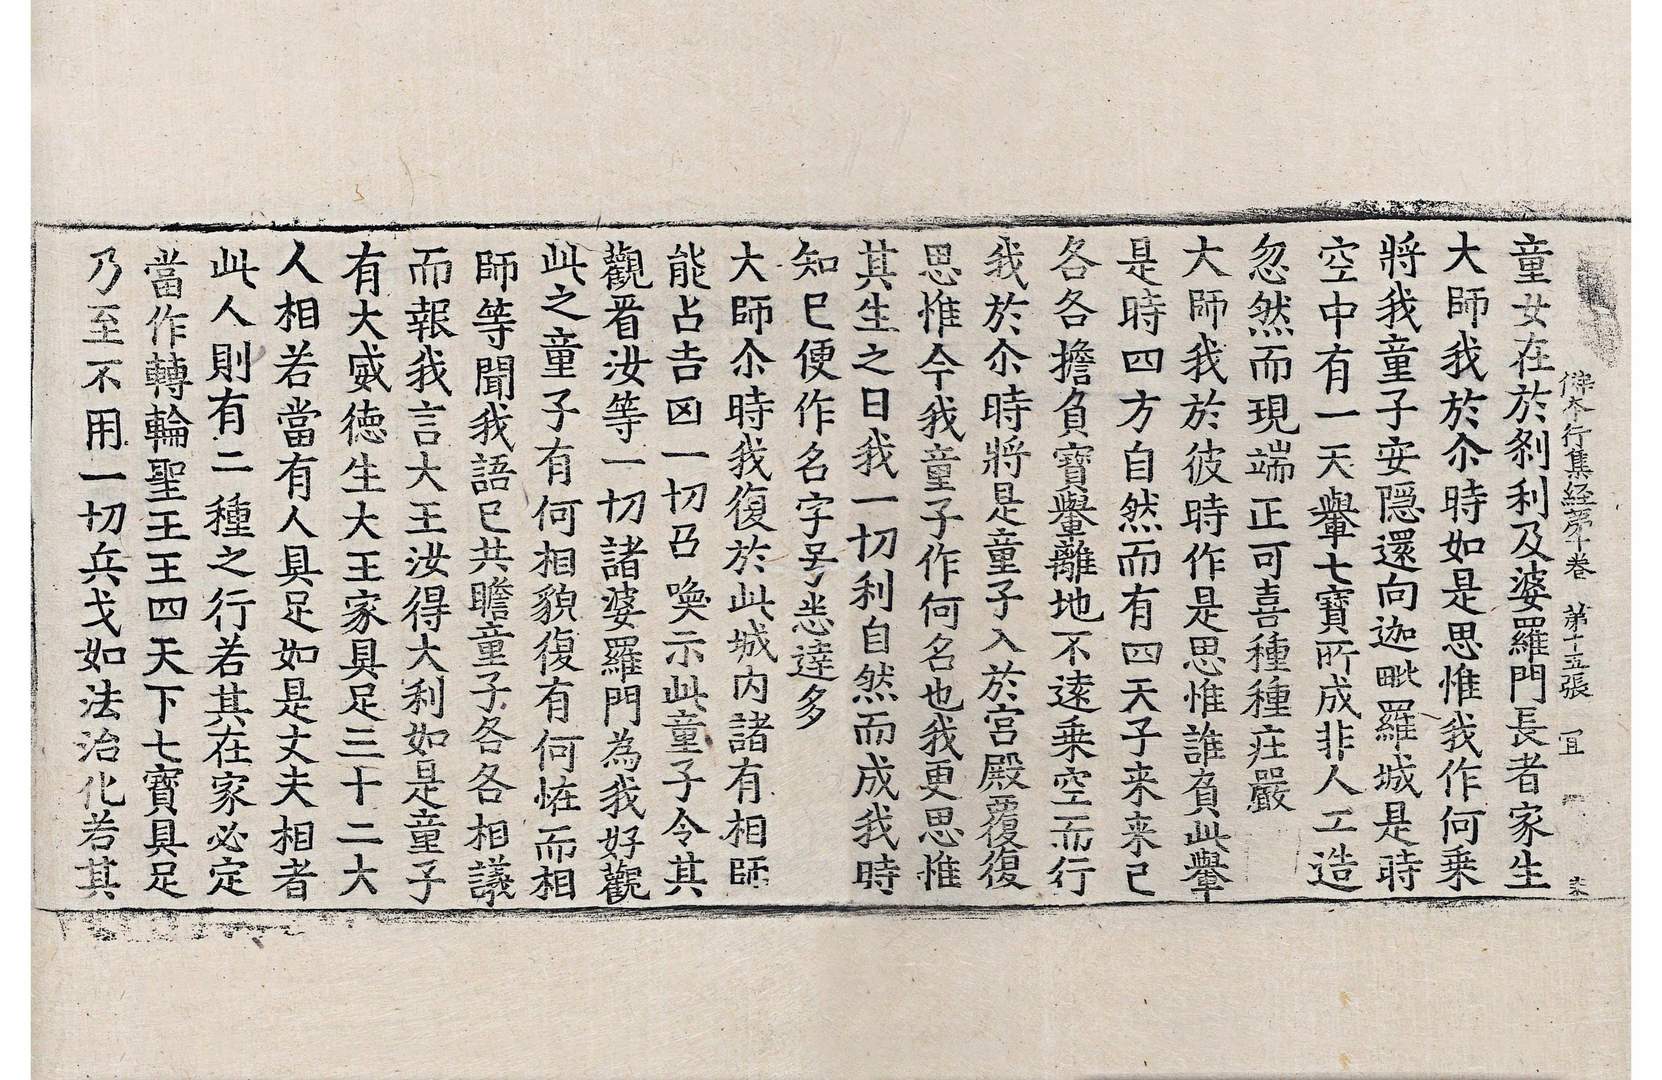 佛本行集經第十卷 第十五張 冝
童女在於刹利及婆羅門長者家生
大師我於尒時如是思惟我作何乗
將我童子安隱還向迦毗羅城是時
空中有一天轝七寶所成非人工造
忽然而現端正可喜種種莊嚴
大師我於彼時作是思惟誰負此轝
是時四方自然而有四天子来来已
各各擔負寶轝離地不遠乗空而行
我於尒時將是童子入於宫殿覆復
思惟今我童子作何名也我更思惟
其生之日我一切利自然而成我時
知已便作名字号悉達多
大師尒時我復於此城内諸有相師
能占吉凶一切召喚示此童子令其
觀看汝等一切諸婆羅門為我好觀
此之童子有何相貌復有何恠而相
師等聞我語已共瞻童子各各相議
而報我言大王汝得大利如是童子
有大威徳生大王家具足三十二大
人相若當有人具足如是丈夫相者
此人則有二種之行若其在家必定
當作轉輪聖王王四天下七寶具足
乃至不用一切兵戈如法治化若其